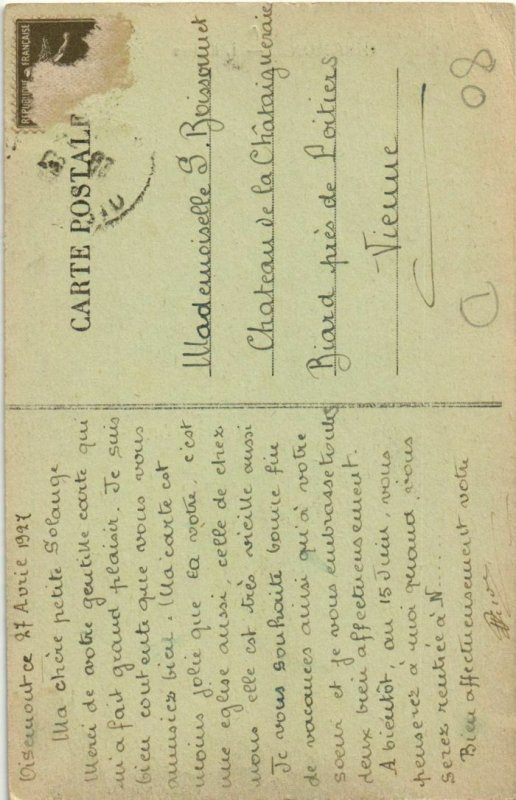 Oisemont ce 27 Avril 1927
Ma chère petite Solange
Merci de votre gentille carte qui
m'a fait grand plaisir. Je suis
bien contente que vous vous
amusiez bien. Ma carte est
moins jolie que la vôtre, c'est
une église aussi, celle de chez
nous elle est très vieille aussi
Je vous souhaite bonne fin
de vacances ainsi qu'à votre
soeur et je vous embrasse toutes
deux bien affectueusement.
A bientôt au 15 Juin, vous
penserez à moi quand vous
serez rentrée à N.....
Bien affectueusement votre
CARTE POSTALE
REPUBLIQUE FRANÇAISE
Mademoiselle S. Boissonnet
Chateau de la Châtaigneraie
Biard près de Poitiers
Vienne
08